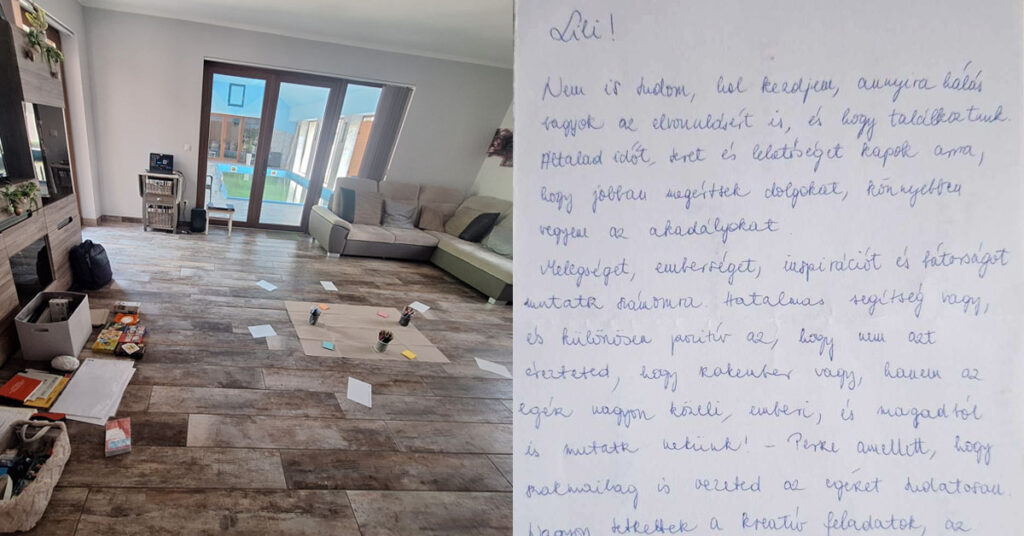 Lili!
Nem is tudom, hol kezdjem, annyira hálás
vagyok az elvonulásért is, és hogy találkoztunk.
Általad időt, teret és lehetőséget kapok arra,
hogy jobban megértsek dolgokat, könnyebben
vegyem az akadályokat.
Melegséget, emberséget, inspirációt és bátorságot
mutatk számomra. Hatalmas segítség vagy,
és különösen pozitív az, hogy nem azt
érezteted, hogy vagy, hanem az
egék nagyon közeli, emberi, és magadból
is mutatk nekünk! - Persze amellett, hogy
szakmailag is vezeted az egéket tudatosan.
Nagyon tetszettek a kreatív feladatok, az